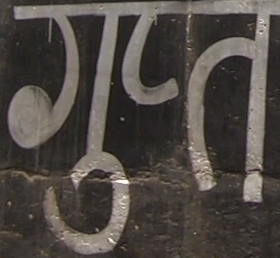 गुप्त